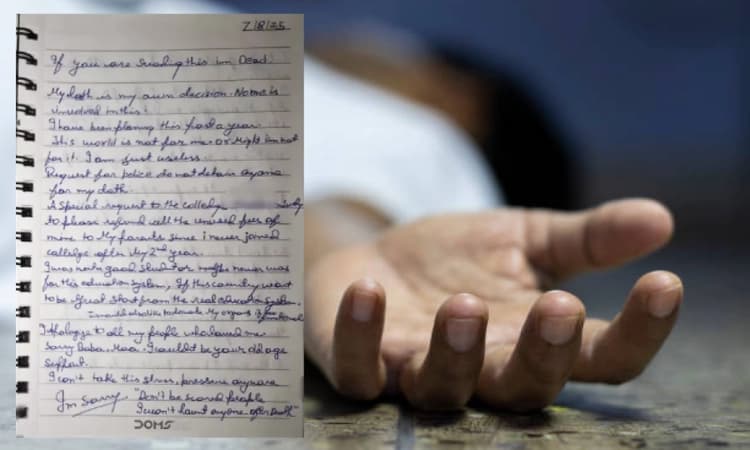 7/8/25
If you are reading this im Dead.
My death is my own decision. No one is
involved in this.
I have been planing this past a year.
This world is not for me or Might Im not
for it. I am just useless.
Request for police do not detain anyone
for my death.
A special request to the colledge
to please refund all the unused fees of
mine to My parents since i never joined
colledge after My 2nd year.
I was not a good student or might never was
for this education system, If this country want
to be Great start from the real education system.
I would also like to donate My organs if
I Apologize to all my people who loved me
Sorry Baba, Maa. I couldn't be your old age
support.
I can't take this stress, pressure anymore
I'm Sorry "Don't be scared people
I won't haunt anyone after Death"
DOMS